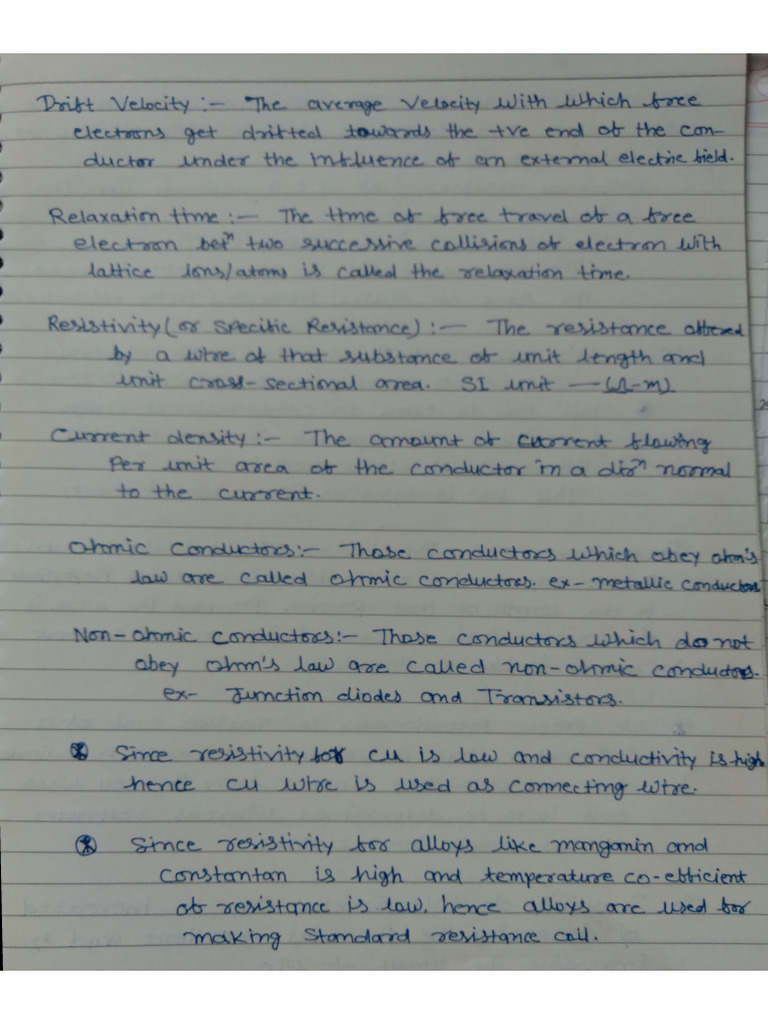 Drift Velocity :- The average velocity with which free
electrons get drifted towards the +ve end of the con-
ductor under the influence of an external electric field.
Relaxation time :- The time of free travel of a free
electron betn two successive collisions of electron with
lattice ions/atoms is called the relaxation time.
Resistivity (or Specific Resistance) :- The resistance offered
by a wire of that substance of unit length and
unit cross-sectional area. SI unit — (Ω-m)
Current density :- The amount of current flowing
Per unit area of the conductor in a dirn normal
to the current.
Ohmic Conductors :- Those conductors which obey ohm's
law are called ohmic conductors. ex- metallic conductors
Non-ohmic conductors :- Those conductors which do not
obey ohm's law are called non-ohmic conductors.
ex- Junction diodes and Transistors.
* Since resistivity for cu is low and conductivity is high
hence cu wire is used as connecting wire.
* Since resistivity for alloys like manganin and
Constantan is high and temperature co-efficient
of resistance is low, hence alloys are used for
making Standard resistance coil.